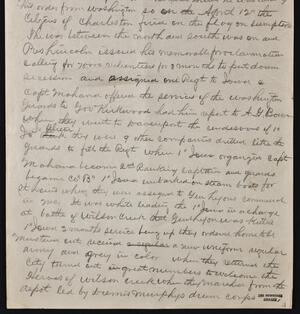 his order from Washington so on the April 12th the
Citizens of Charleston fired on the flag on Sumpter
The war between the north and south was on and
Pres Lincoln issued his memorable proclamation
calling for 7000 volunteers for 3 months to put down
secession and assigned one Regt to Iowa &
Capt Mahana offered the services of the Washington
Guards to Gov Kirkwood had him report to A G Bowen
when they went to Davenport the rendezvous of 1st
they were & other companies drilled like the
Guards to fill the Regt when 1st Iowa organized Capt
Mahana became 2nd Ranking Captain and guards
became Co B 1st Iowa embarked on steam boats for
St Louis when they was assigned to Gen Lyons command
in Mo. It was while leading the 1st Iowa in a charge
at battle of Wilson Creek that Gen Lyon was killed
1st Iowa 3 months service being up they ordered home to be
mustered out received a new uniform regular
army and grey in color when they returned the
City turned out in great numbers to welcome the
Heroes of Wilson creek when they marched from the
depot led by drummer Murphys drum corps